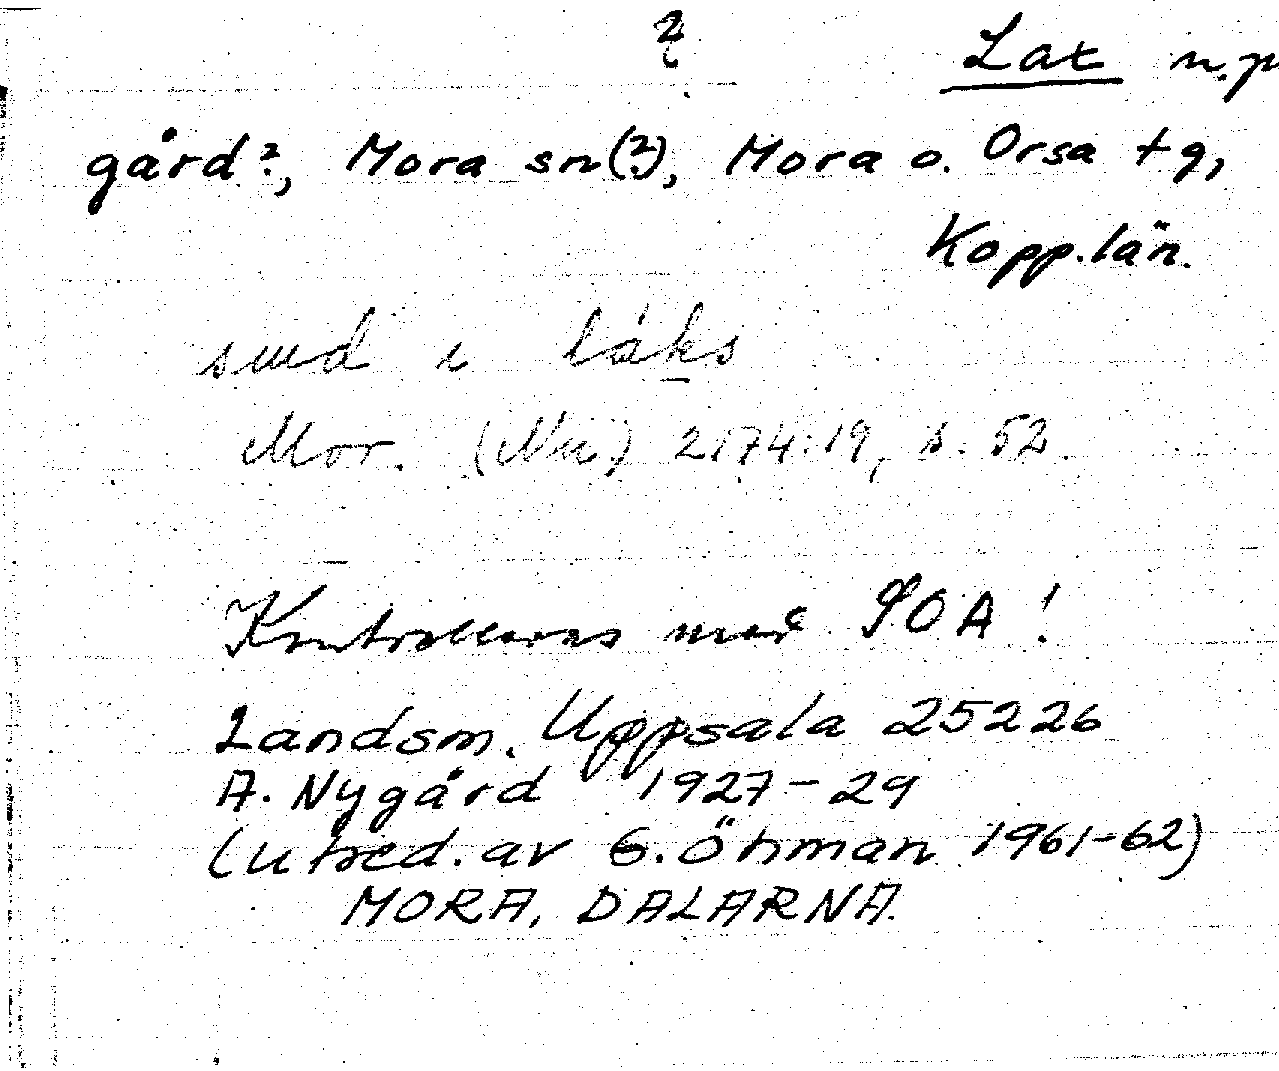 ?
Lax n.
gård?, Mora sn(?), Mora o. Orsa tg,
Kopp.län.
smd i láks
Mor. (Nu) 2174:19, s. 52.
Kontrolleras med SOA!
Landsm. Uppsala 25226
A. Nygård 1927-29
(utred. av G. Öhman 1961-62)
MORA, DALARNA.